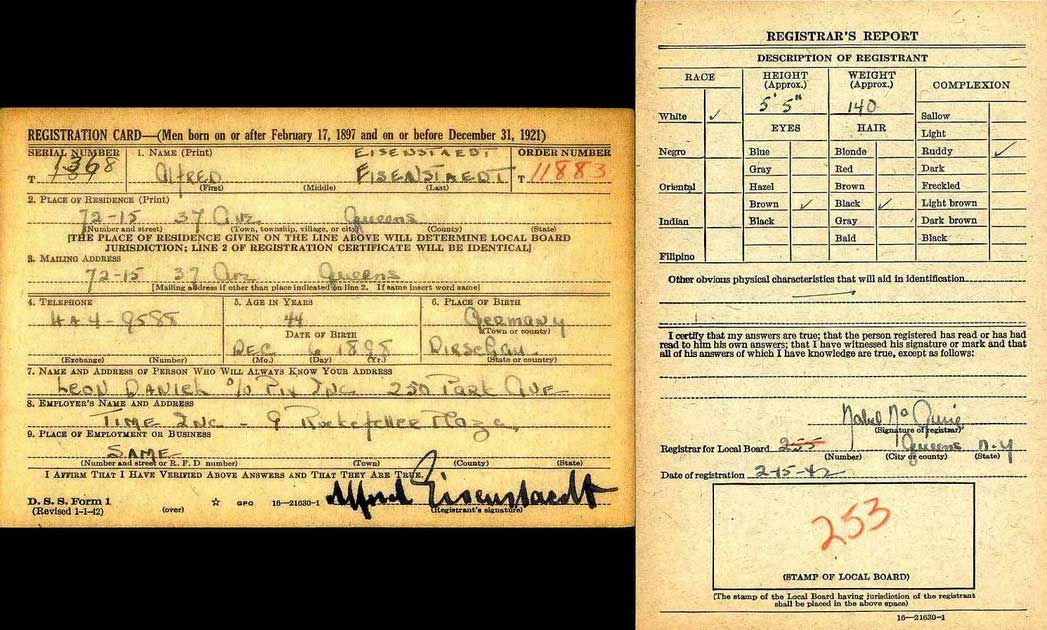 REGISTRATION CARD—(Men born on or after February 17, 1897 and on or before December 31, 1921)
SERIAL NUMBER
T 1368
1. NAME (Print)
EISENSTAEDT
ALFRED EISENSTAEDT
(First) (Middle) (Last)
ORDER NUMBER
T 11883
2. PLACE OF RESIDENCE (Print)
72-15 37 Ave Queens
(Number and street) (Town, township, village, or city) (County) (State)
[THE PLACE OF RESIDENCE GIVEN ON THE LINE ABOVE WILL DETERMINE LOCAL BOARD
JURISDICTION; LINE 2 OF REGISTRATION CERTIFICATE WILL BE IDENTICAL]
3. MAILING ADDRESS
72-15 37 Ave Queens
[Mailing address if other than place indicated on line 2. If same insert word same]
4. TELEPHONE
HA 4-9588
(Exchange) (Number)
5. AGE IN YEARS
44
DATE OF BIRTH
DEC 6 1898
(Mo.) (Day) (Yr.)
6. PLACE OF BIRTH
Germany
(Town or county)
Dirschau
(State or country)
7. NAME AND ADDRESS OF PERSON WHO WILL ALWAYS KNOW YOUR ADDRESS
LEON DANIEL c/o Pix Inc 250 Park Ave
8. EMPLOYER'S NAME AND ADDRESS
TIME Inc - 9 Rockefeller Plaza,
9. PLACE OF EMPLOYMENT OR BUSINESS
SAME
(Number and street or R. F. D number) (Town) (County) (State)
I AFFIRM THAT I HAVE VERIFIED ABOVE ANSWERS AND THAT THEY ARE TRUE.
D. S. S. Form 1
(Revised 1-1-42) (over) ☆ GPO 16—21630-1
Alfred Eisenstaedt
(Registrant's signature)
REGISTRAR'S REPORT
DESCRIPTION OF REGISTRANT
RACE
White ✓
Negro
Oriental
Indian
Filipino
HEIGHT
(Approx.)
5' 5"
EYES
Blue
Gray
Hazel
Brown ✓
Black
WEIGHT
(Approx.)
140
HAIR
Blonde
Red
Brown
Black ✓
Gray
Bald
COMPLEXION
Sallow
Light
Ruddy ✓
Dark
Freckled
Light brown
Dark brown
Black
Other obvious physical characteristics that will aid in identification
I certify that my answers are true; that the person registered has read or has had
read to him his own answers; that I have witnessed his signature or mark and that
all of his answers of which I have knowledge are true, except as follows:
(Signature of registrar)
Registrar for Local Board 255 Queens N-Y
(Number) (City or county) (State)
Date of registration 2-15-42
253
(STAMP OF LOCAL BOARD)
(The stamp of the Local Board having jurisdiction of the registrant
shall be placed in the above space)
16—21630-1